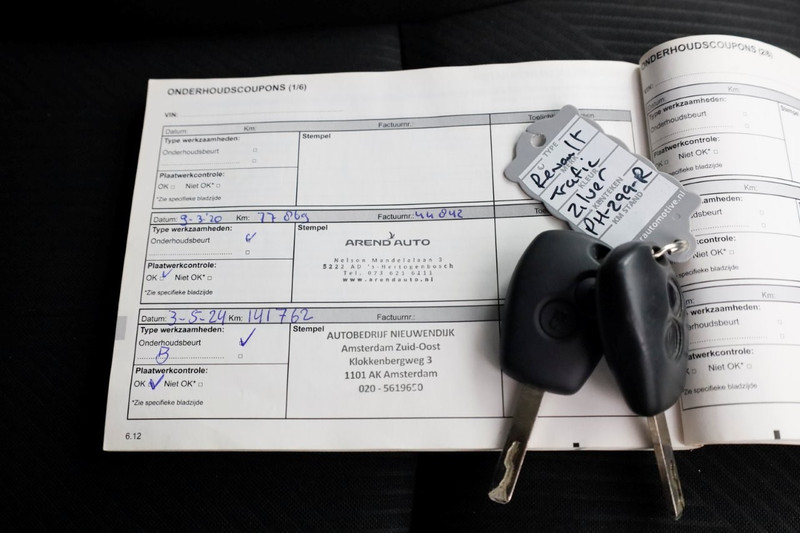 ONDERHOUDSCOUPONS (1/6)
VIN:
Datum: Km: Factuurnr.:
Type werkzaamheden: Stempel
Onderhoudsbeurt
Plaatwerkcontrole:
OK Niet OK*
*Zie specifieke bladzijde
Datum: 9-3-'20 Km: 77 869 Factuurnr.: 44 842
Type werkzaamheden: Stempel
Onderhoudsbeurt
Plaatwerkcontrole:
OK Niet OK*
*Zie specifieke bladzijde
AREND AUTO
Nelson Mandelalaan 3
5222 AD 's-Hertogenbosch
Tel. 073 623 6211
www.arendauto.nl
Datum: 3-5-24 Km: 141762 Factuurnr.:
Type werkzaamheden: Stempel
Onderhoudsbeurt
B
Plaatwerkcontrole:
OK Niet OK*
*Zie specifieke bladzijde
AUTOBEDRIJF NIEUWENDIJK
Amsterdam Zuid-Oost
Klokkenbergweg 3
1101 AK Amsterdam
020 - 5619650
6.12
TYPE
Renault
Trafic
KLEUR
Zilver
KENTEKEN
PH-299-R
KM STAND
automotive.nl
ONDERHOUDSCOUPONS (2/6)
Km:
werkzaamheden:
Onderhoudsbeurt
Plaatwerkcontrole:
OK Niet OK*
*Zie specifieke bladzijde
Km:
werkzaamheden:
Niet OK*
specifieke bladzijde